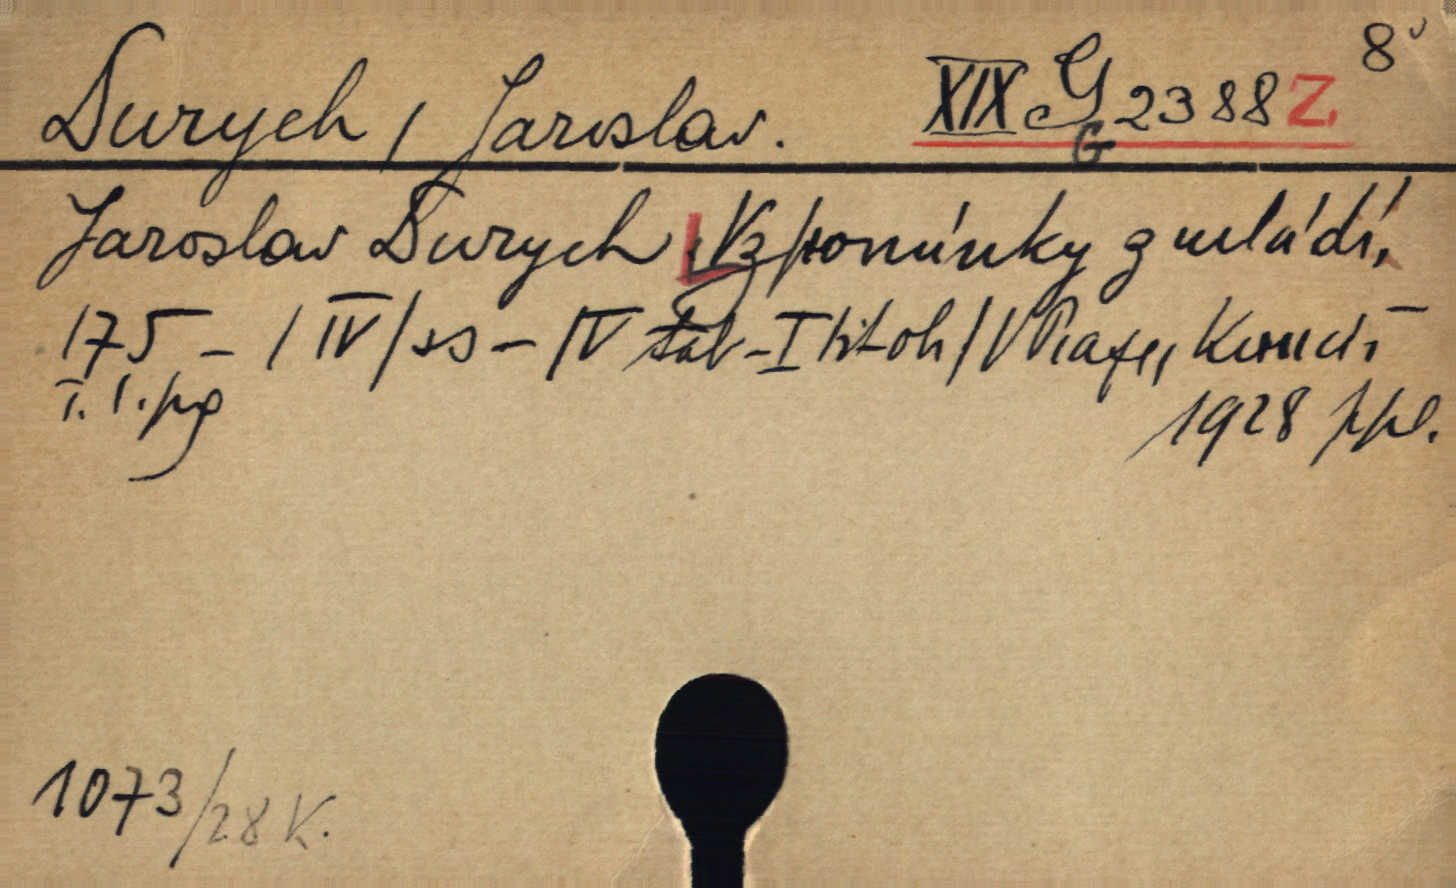 8°
Durych, Jaroslav. XIX G 2388 Z.
G
Jaroslav Durych Vzpomínky z mládí,
175 - / IV / ss - IV tab - I tit ob / V Praze, Kuncíř
1928 ppl.
1073/28 K.